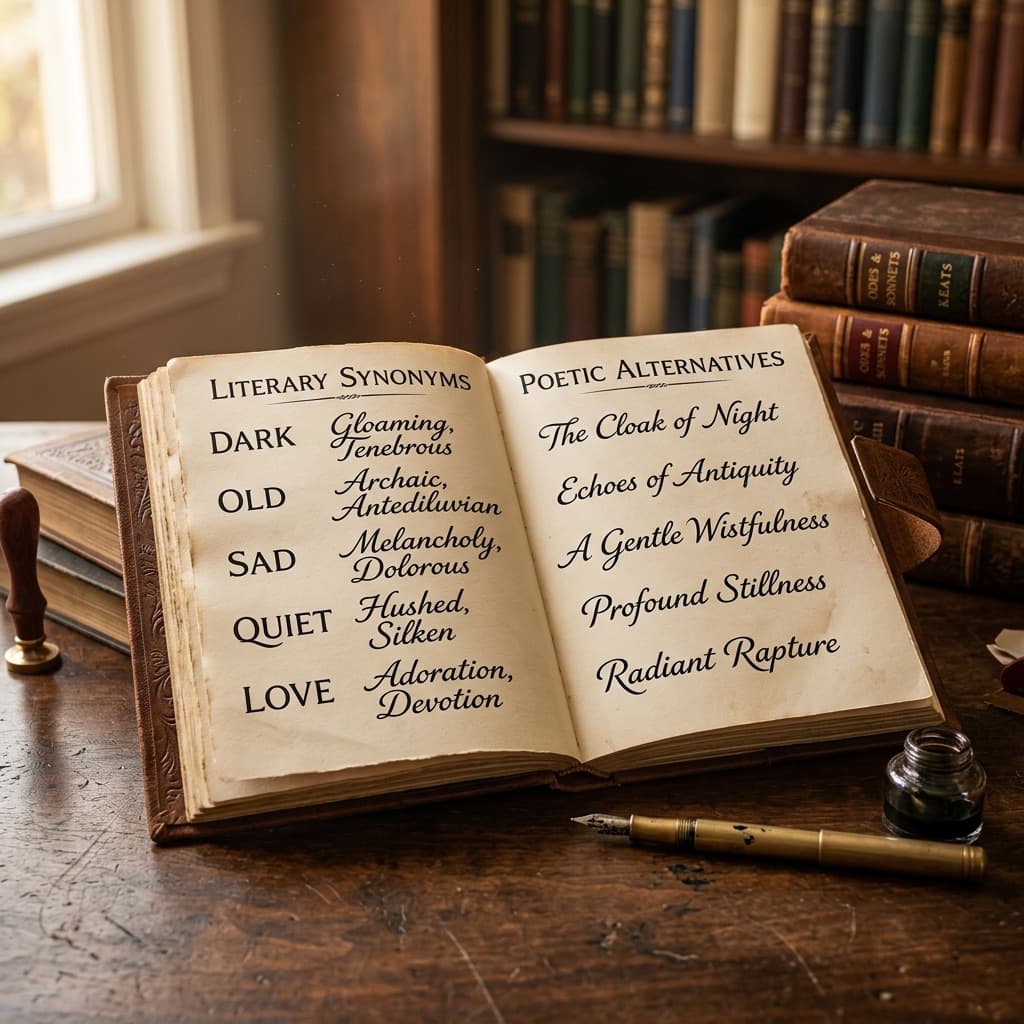 LITERARY SYNONYMS
DARK Gloaming,
Tenebrous
OLD Archaic,
Antediluvian
SAD Melancholy,
Dolorous
QUIET Hushed,
Silken
LOVE Adoration,
Devotion
POETIC ALTERNATIVES
The Cloak of Night
Echoes of Antiquity
A Gentle Wistfulness
Profound Stillness
Radiant Rapture
ODES &
SONNETS
KEATS